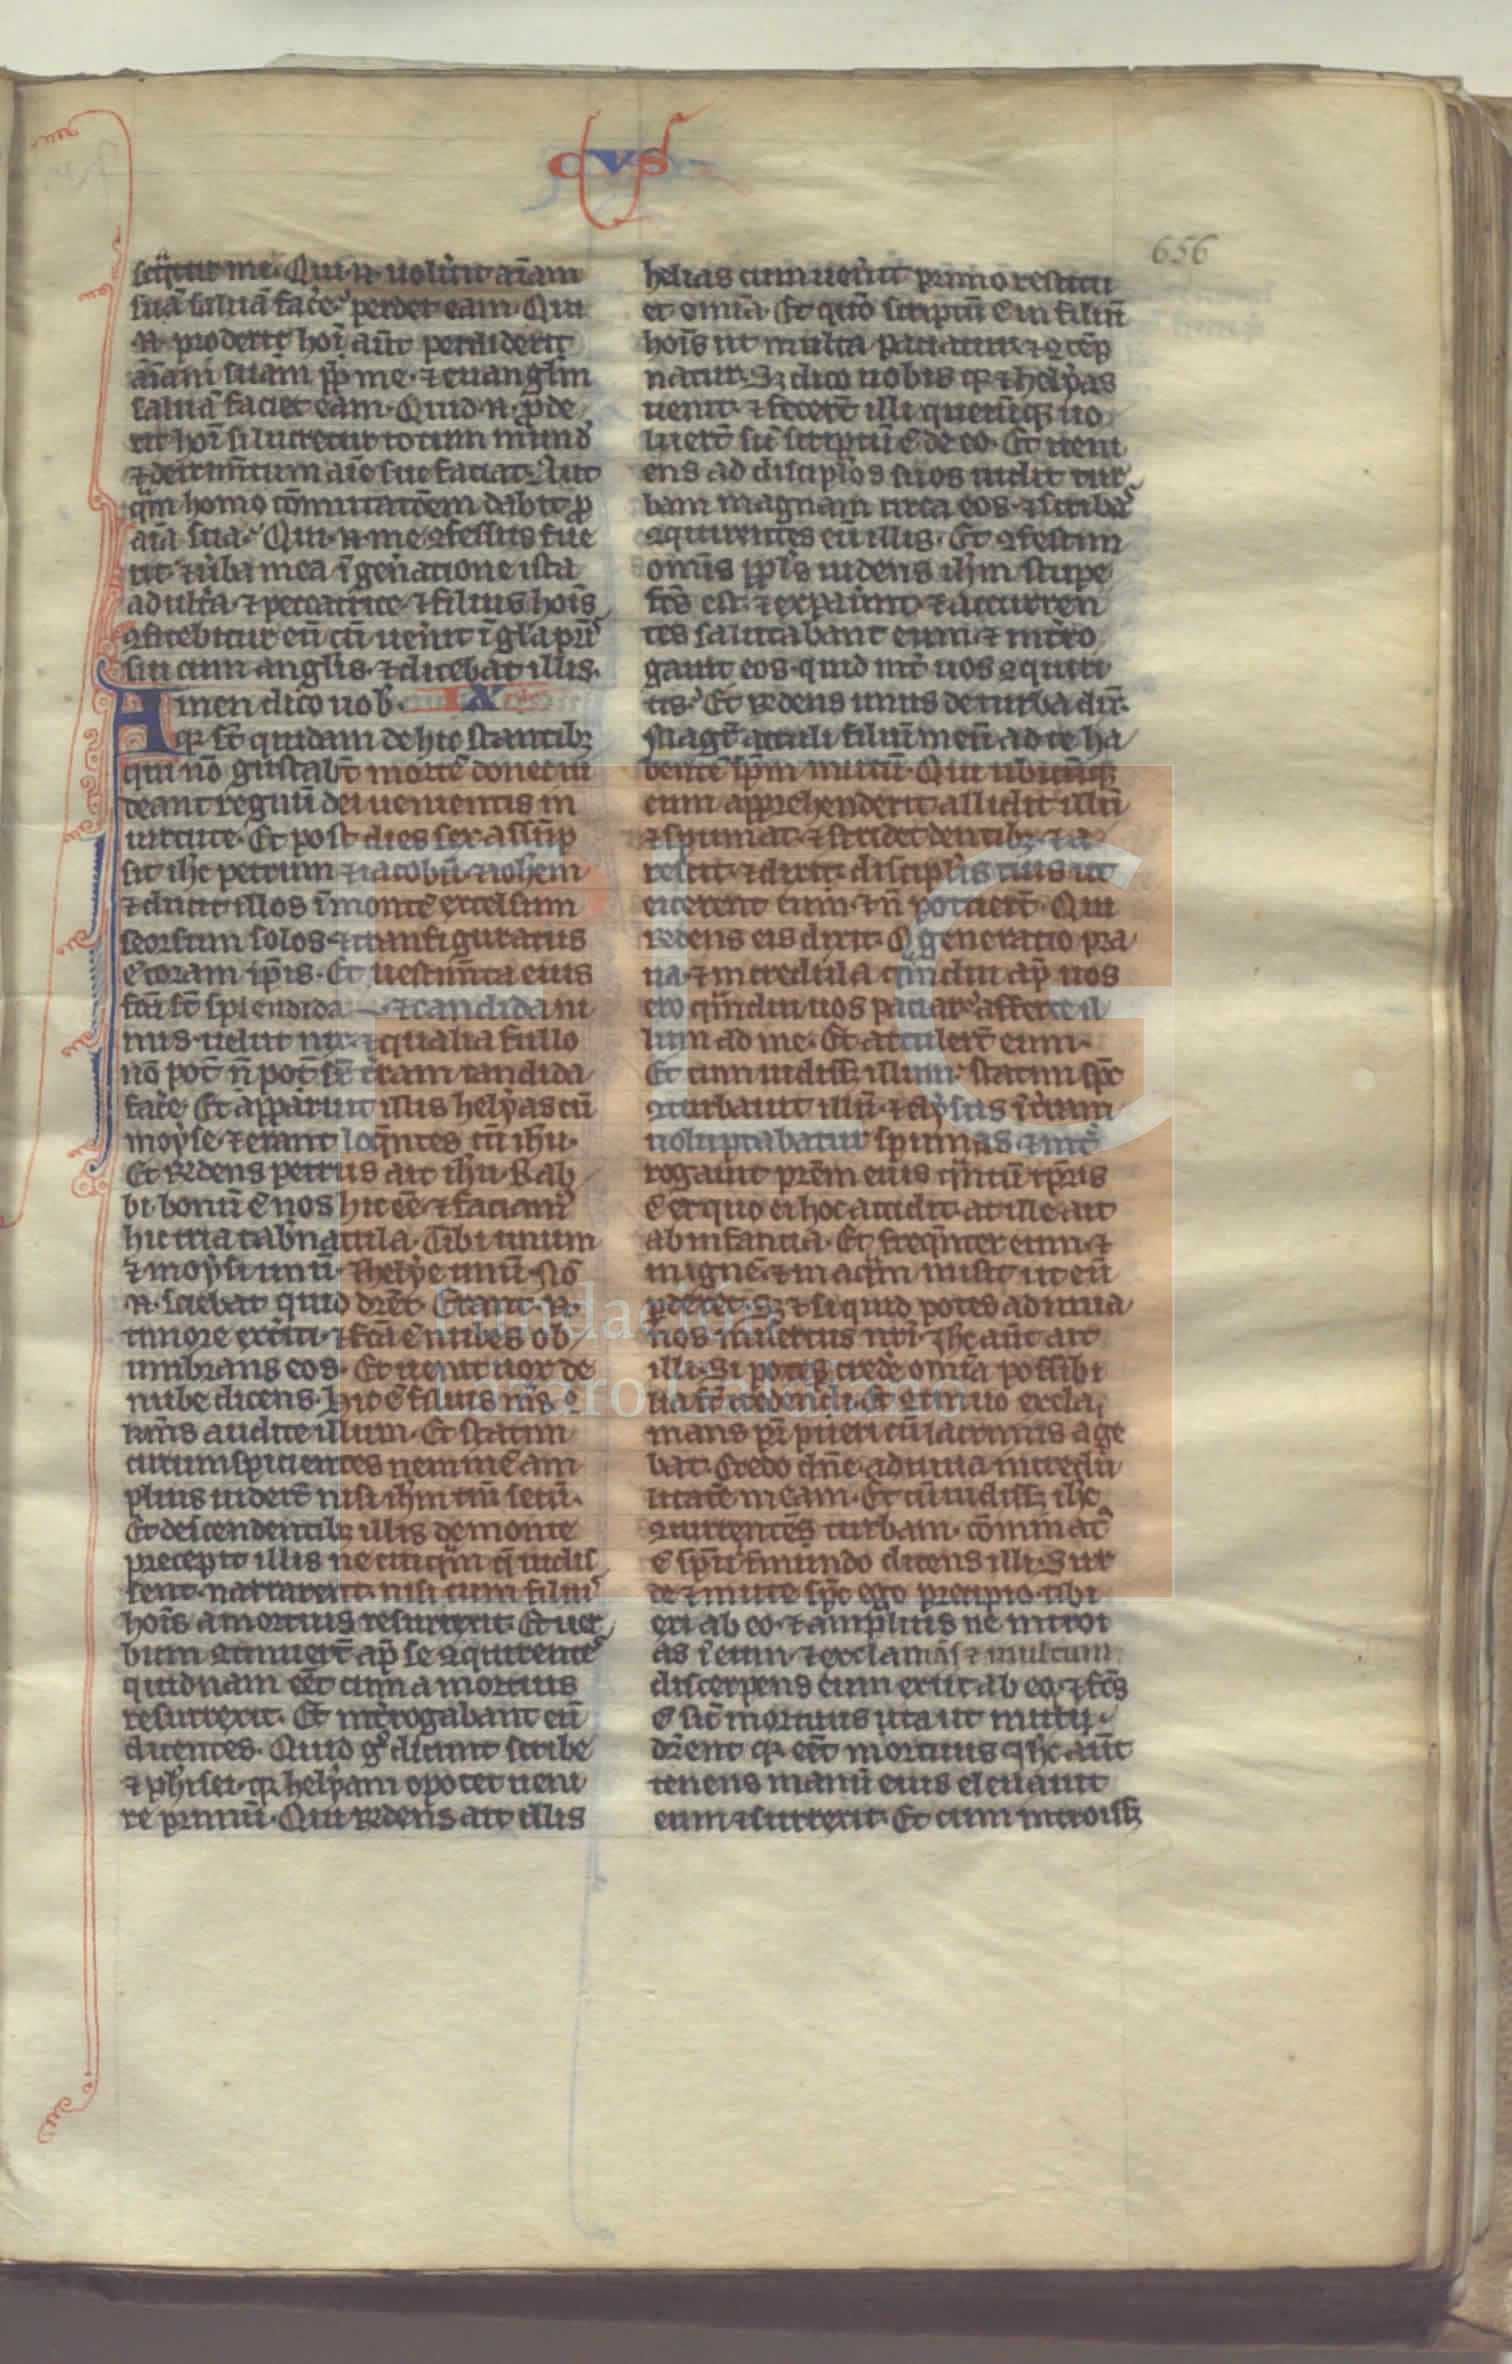 cvs
656
seq̃tur me. Qui .n. uolũit aĩam
suã saluã fac̾e perdet eam. Qui
.n. proderit hoĩ aũt perdiderit
aĩam suam p̃p me. ⁊ euangl̃m
saluã faciet eam. Quid .n. p̃de
rit hoĩ si lucretur totum mund̾
⁊ detrim̃tum aĩe sue faciat. Aut
q̃m homo cõmutatõem dabit p̃
aĩa sua. Qui .n. me ꝯfessus fue
rit ⁊ ũba mea ĩ geñatione ista
adult̃a ⁊ peccatrice. ⁊ filius hoĩs
ꝯfitebitur eũ cũ uen̾it ĩ gl̃a pr̃is
sui cum angl̃is. ⁊ dicebat illis.
Amen dico uob̾. IX
qꝛ st̃ quidam de hic stantibꝫ
qui nõ gustabt̃ mortẽ donec ui
deant regnũ dei uenientis in
uirtute. Et post dies sex assũp
sit ihc petrum ⁊ iacobũ ⁊ iohem
⁊ ducit illos ĩ montẽ excelsum
seorsum solos. ⁊ transfiguratus
ẽ coram ip̃is. Et uestim̃ta eius
fc̃a st̃ splendida ⁊ candida ni
mis. uelut nix. ⁊ qualia fullo
nõ pot̃ ñ pot̃ sr̃ t̃ram candida
fac̾e. Et apparuit illis helyas cũ
moyse. ⁊ erant loq̃ntes cũ ihu.
Et r̃ndens petrus ait ihu. Rab
bi. bonũ ẽ nos hic eẽ. ⁊ faciam̾
hic tria tab̾nacula. Tibi unum
⁊ moysi unũ. ⁊ helye unũ. Nõ
.n. sciebat quid dr̃et. Erant .n.
timore ext̃iti. ⁊ fc̃a ẽ nubes ob
umbrans eos. Et uenit uox de
nube dicens. Hic ẽ filius m̾s. c̾
rim̃s audite illum. Et statim
circumspicientes neminẽ am
plius uidert̃ nisi ihm tm̃ secũ.
Et descendentibꝫ illis de monte
precepit illis ne cuiq̃m q̃ uidis
sent narrarent. nisi cum filius
hoĩs a mortuis resurrexit. Et uer
bum ꝯtinuert̃ ap̃ se ꝯquirentes
quidnam eẽt cum a mortuis
resurrexit. Et int̾rogabant eũ
dicentes. Quid g̾ dicunt scribe
⁊ phisei. qꝛ helyam opotet ueni
re primũ. Qui r̃ndens ait illis
helias cum uen̾it primo restitu
et omĩa. Et quõ scriptũ ẽ in filiũ
hoĩs ut multa patiatur ⁊ ꝯtẽp
natur. Sꝫ dico uobis qꝛ ⁊ helyas
uenit. ⁊ fecert̃ illi quecũqꝫ uo
luert̃ sic̃ scriptũ ẽ de eo. Et ueni
ens ad discip̾los suos uidit tur
bam magnam circa eos. ⁊ scribas
ꝯquirentes cũ illis. Et ꝯfestim
omĩs ppl̾s uidens ihm stupe
fc̃s est. ⁊ expauit. ⁊ accurren
tes salutabant eum. ⁊ int̾ro
gauit eos. quid int̾ uos ꝯquiri
tis. Et r̃ndens unus de turba dix̃.
Magr̃ attuli filiũ meũ ad te ha
bentẽ sp̃m mutũ. Qui ubicũqꝫ
eum apprehenderit allidit illũ
⁊ spumat. ⁊ stridet dentibꝫ. ⁊ a
rescit. ⁊ dixit discipl̾is tuis ut
eicerent eum. ⁊ ñ potuert̃. Qui
r̃ndens eis dixit. O generatio pra
ua. ⁊ incredula q̃mdiu ap̃ uos
ero q̃mdiu uos patiar. afferte il
lum ad me. Et attulert̃ eum.
Et cum uidissꝫ illum. statim sp̃c
ꝯturbauit illũ. ⁊ elysus ĩ t̃ram
uoluptabatur spumas. ⁊ int̾
rogauit pr̃em eius q̃ntũ tp̃ris
ẽ ex quo ei hoc accidit. at ille ait
ab infantia. Et freq̃nter eum. ⁊
in ignẽ. ⁊ in aq̃m misit ut eũ
p̃deret. Sꝫ ⁊ si quid potes adiuua
nos misertus nr̃i. ihc aũt ait
illi. Si potes crede omĩa possibi
lia st̃ credenti. Et ꝯtinuo excla
mans pr̃ pueri cũ lacrimis age
bat. Credo dñe. adiuua incredu
litatẽ meam. Et cũ uidissꝫ ihc
ꝯcurrentẽs turbam. cõminat̾
ẽ sp̃ui ĩmundo dicens illi. Sur
de ⁊ mute sp̃c ego precipio tibi
exi ab eo. ⁊ amplius ne introi
as ĩ eum. ⁊ exclamãs ⁊ multum
discerpens eum exiit ab eo. ⁊ fc̃s
ẽ sic̃ mortuus ita ut multi
dr̃ent qꝛ eẽt mortuus. ihc aũt
tenens manũ eius eleuauit
eum ⁊ surrexit. Et cum introissꝫ
FLG
Fundación
Lázaro Galdiano